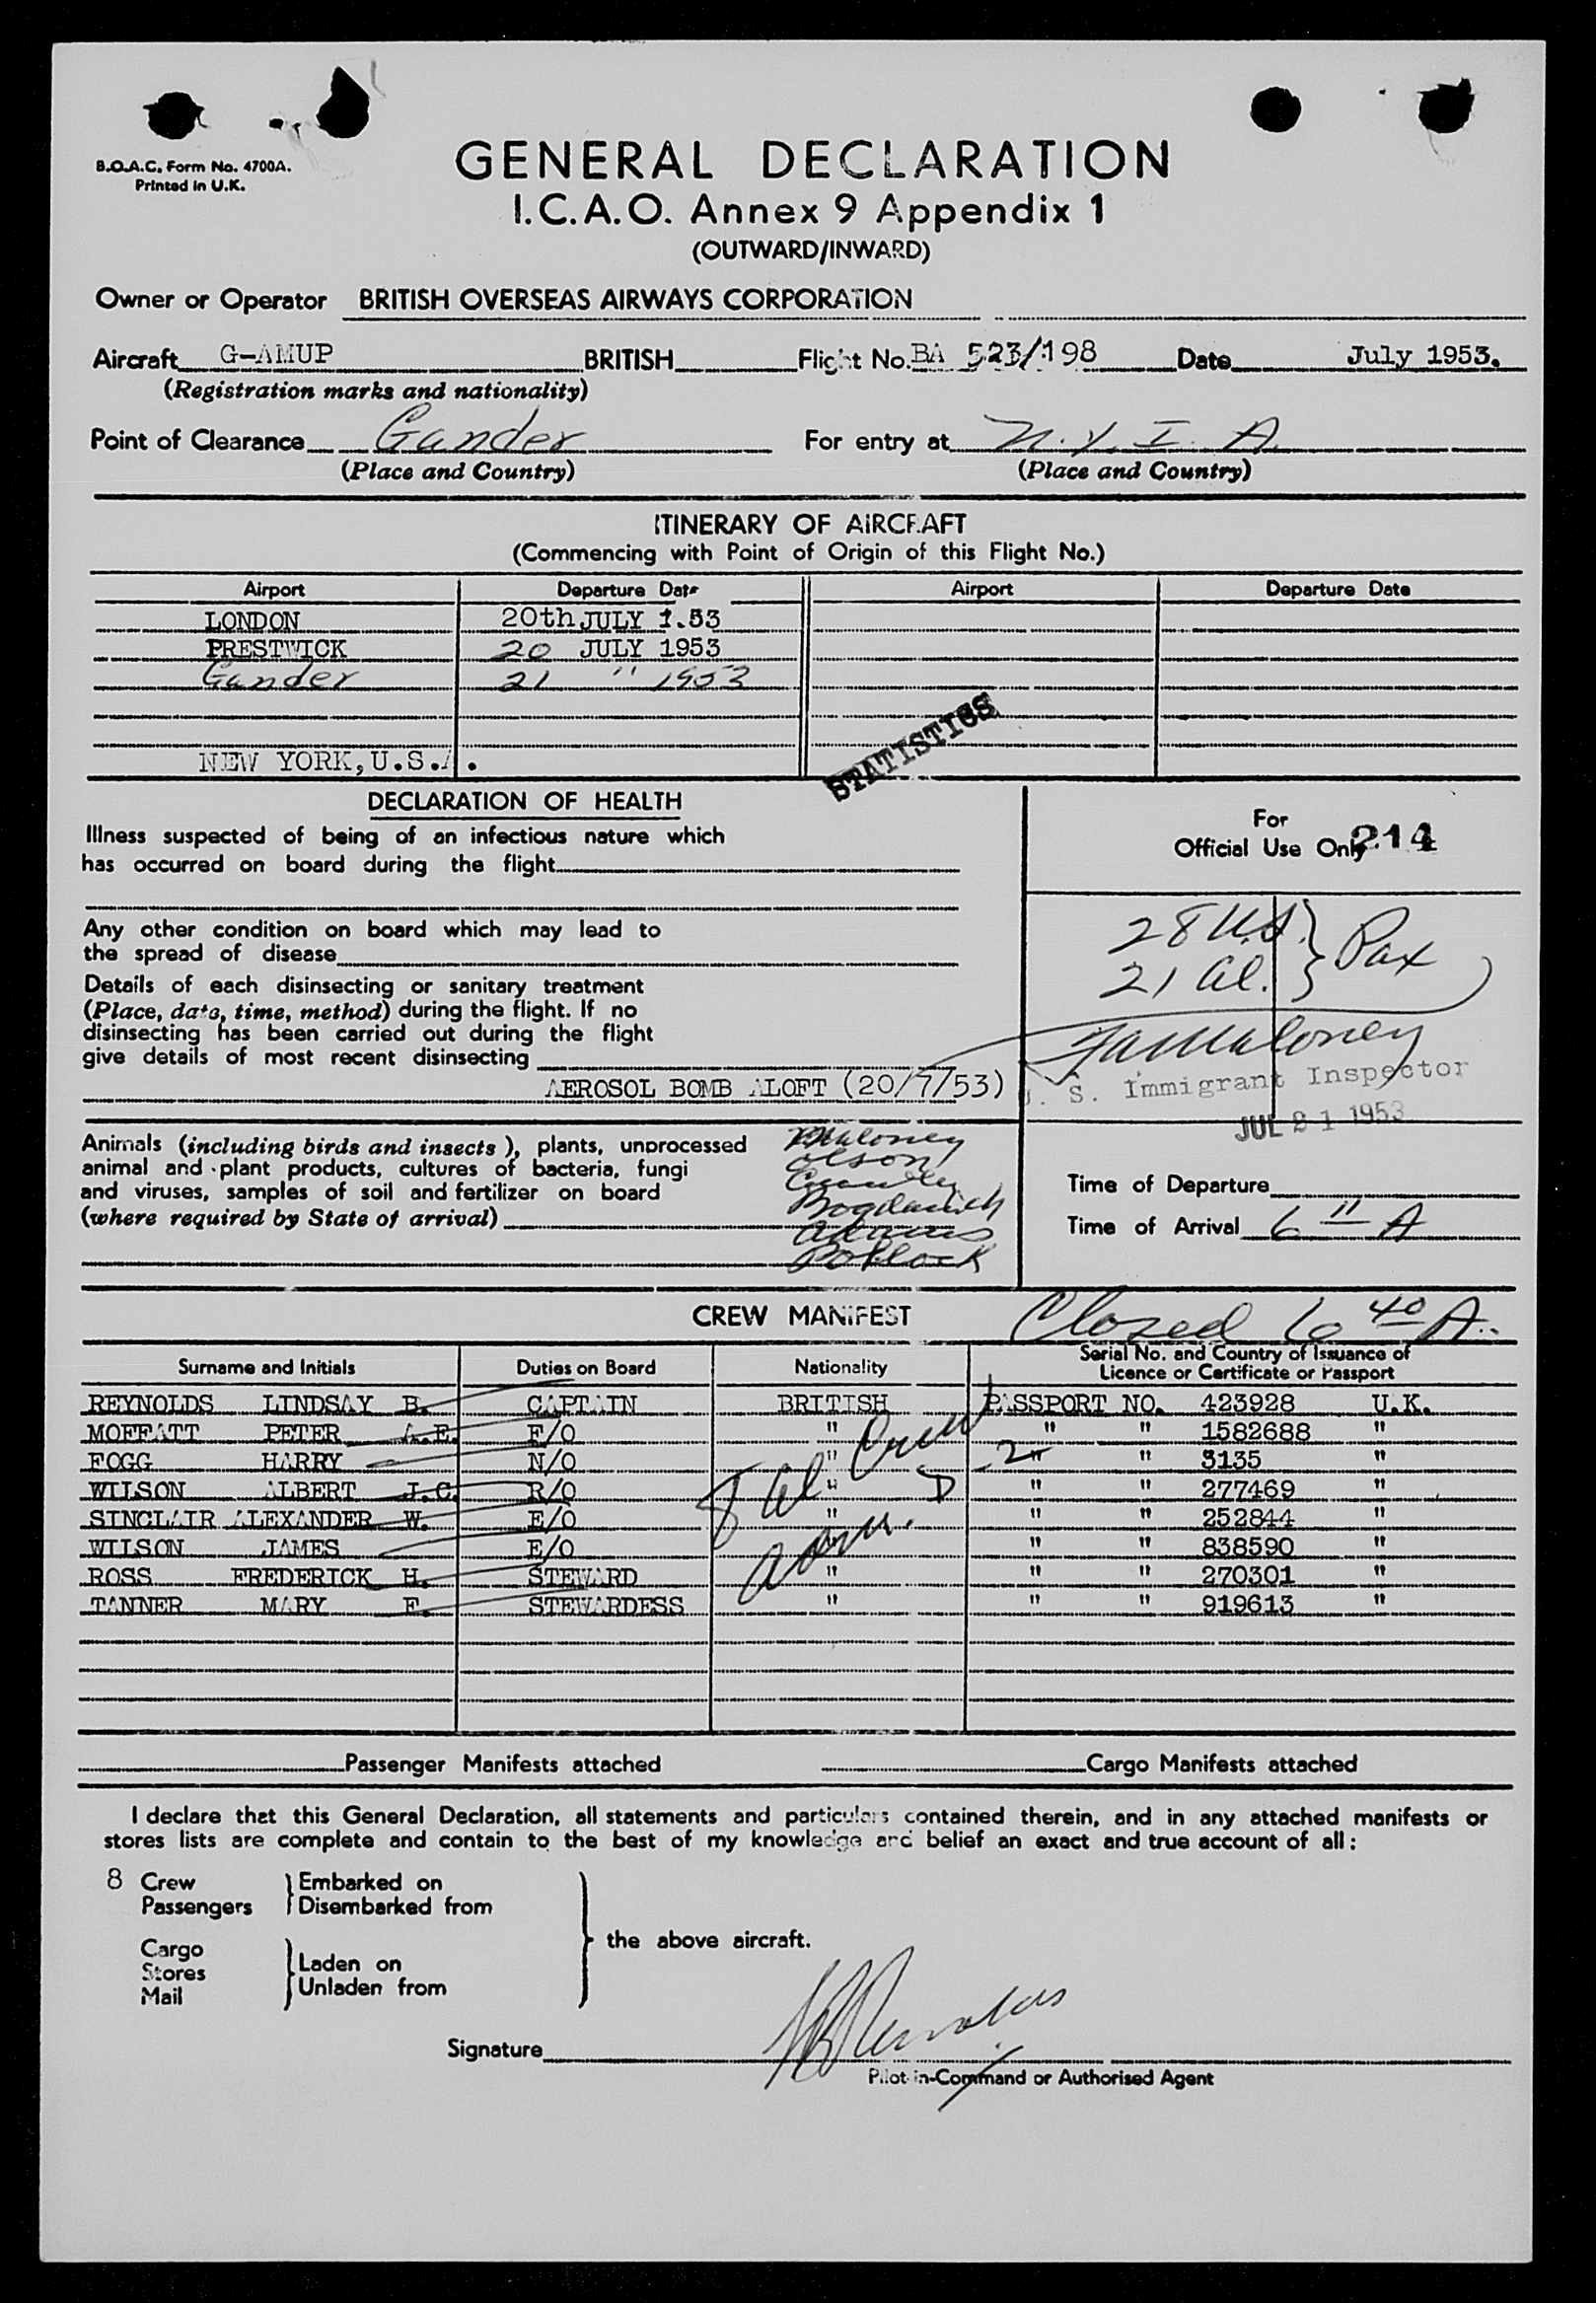 B.O.A.C. Form No. 4700A.
Printed in U.K.
GENERAL DECLARATION
I.C.A.O. Annex 9 Appendix 1
(OUTWARD/INWARD)
Owner or Operator BRITISH OVERSEAS AIRWAYS CORPORATION
Aircraft G-AMUP BRITISH Flight No. BA 523/198 Date July 1953.
(Registration marks and nationality)
Point of Clearance Gander For entry at N.Y.I.A.
(Place and Country) (Place and Country)
ITINERARY OF AIRCRAFT
(Commencing with Point of Origin of this Flight No.)
Airport Departure Date Airport Departure Date
LONDON 20th JULY 1.53
PRESTWICK 20 JULY 1953
Gander 21 " 1953
NEW YORK, U.S.A.
STATISTICS
DECLARATION OF HEALTH
Illness suspected of being of an infectious nature which
has occurred on board during the flight
Any other condition on board which may lead to
the spread of disease
Details of each disinsecting or sanitary treatment
(Place, date, time, method) during the flight. If no
disinsecting has been carried out during the flight
give details of most recent disinsecting
AEROSOL BOMB ALOFT (20/7/53)
Animals (including birds and insects), plants, unprocessed
animal and plant products, cultures of bacteria, fungi
and viruses, samples of soil and fertilizer on board
(where required by State of arrival)
Maloney
Olson
Bogdanich
Adams
Pollock
For
Official Use Only 214
28 U.S. } Pax
21 Al. }
Maloney
U. S. Immigrant Inspector
JUL 21 1953
Time of Departure
Time of Arrival 6 11 A
CREW MANIFEST
Closed 6 40 A.
Surname and Initials Duties on Board Nationality Serial No. and Country of Issuance of
Licence or Certificate or Passport
REYNOLDS LINDSAY B. CAPTAIN BRITISH PASSPORT NO. 423928 U.K.
MOFFATT PETER A.E. F/O " " " 1582688 "
FOGG HARRY N/O " " " 3135 "
WILSON ALBERT J.C. R/O " " " 277469 "
SINCLAIR ALEXANDER W. E/O " " " 252844 "
WILSON JAMES E/O " " " 838590 "
ROSS FREDERICK H. STEWARD " " " 270301 "
TANNER MARY F. STEWARDESS " " " 919613 "
8 Al Crew
D 2
adm.
Passenger Manifests attached Cargo Manifests attached
I declare that this General Declaration, all statements and particulars contained therein, and in any attached manifests or
stores lists are complete and contain to the best of my knowledge and belief an exact and true account of all:
8 Crew } Embarked on
Passengers } Disembarked from
the above aircraft.
Cargo
Stores } Laden on
Mail } Unladen from
Signature LBReynolds
Pilot-in-Command or Authorised Agent